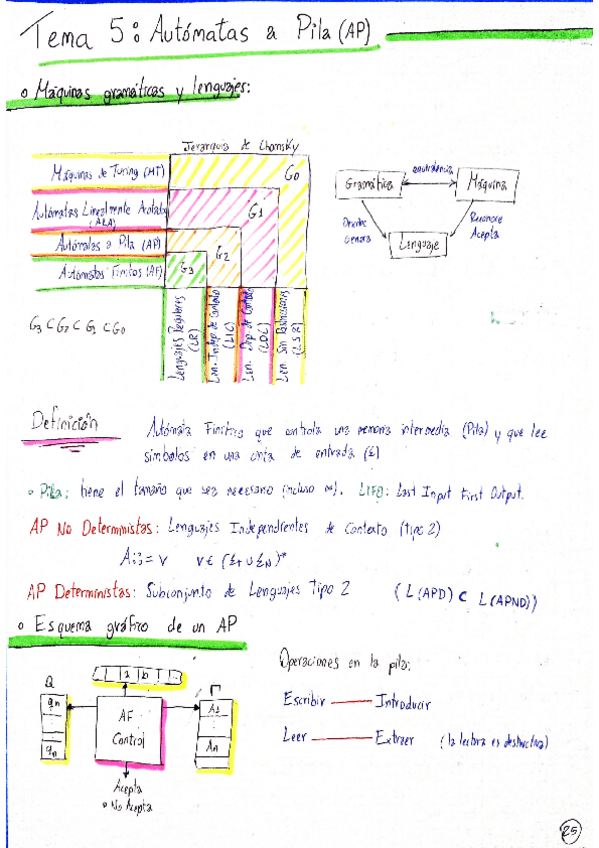 Tema 5: Autómatas a Pila (AP)
• Máquinas gramáticas y lenguajes:
Jerarquía de Chomsky
Máquinas de Turing (MT)
G0
Autómatas Linealmente Acotados (ALA)
G1
Autómatas a Pila (AP)
G2
Autómatas Finitos (AF)
G3
Lenguajes Regulares (LR)
Len. Indep. de Contexto (LIC)
Len. Dep. de Contexto (LDC)
Len. Sin Restricciones (LSR)
G3 ⊂ G2 ⊂ G1 ⊂ G0
Gramática
equivalencia
Máquina
Describe
Genera
Reconoce
Acepta
Lenguaje
Definición
Autómata Finito que controla una memoria intermedia (Pila) y que lee
símbolos en una cinta de entrada (Σ)
• Pila: tiene el tamaño que sea necesario (incluso ∞). LIFO: Last Input First Output.
AP No Deterministas: Lenguajes Independientes de Contexto (tipo 2)
A::=v v ∈ (ΣT ∪ ΣN)*
AP Deterministas: Subconjunto de Lenguajes Tipo 2 (L(APD) ⊂ L(APND))
• Esquema gráfico de un AP
Q
a b
Γ
qn
qn
AF
Control
A1
An
Acepta
o No Acepta
Operaciones en la pila:
Escribir — Introducir
Leer — Extraer (la lectura es destructiva)
25